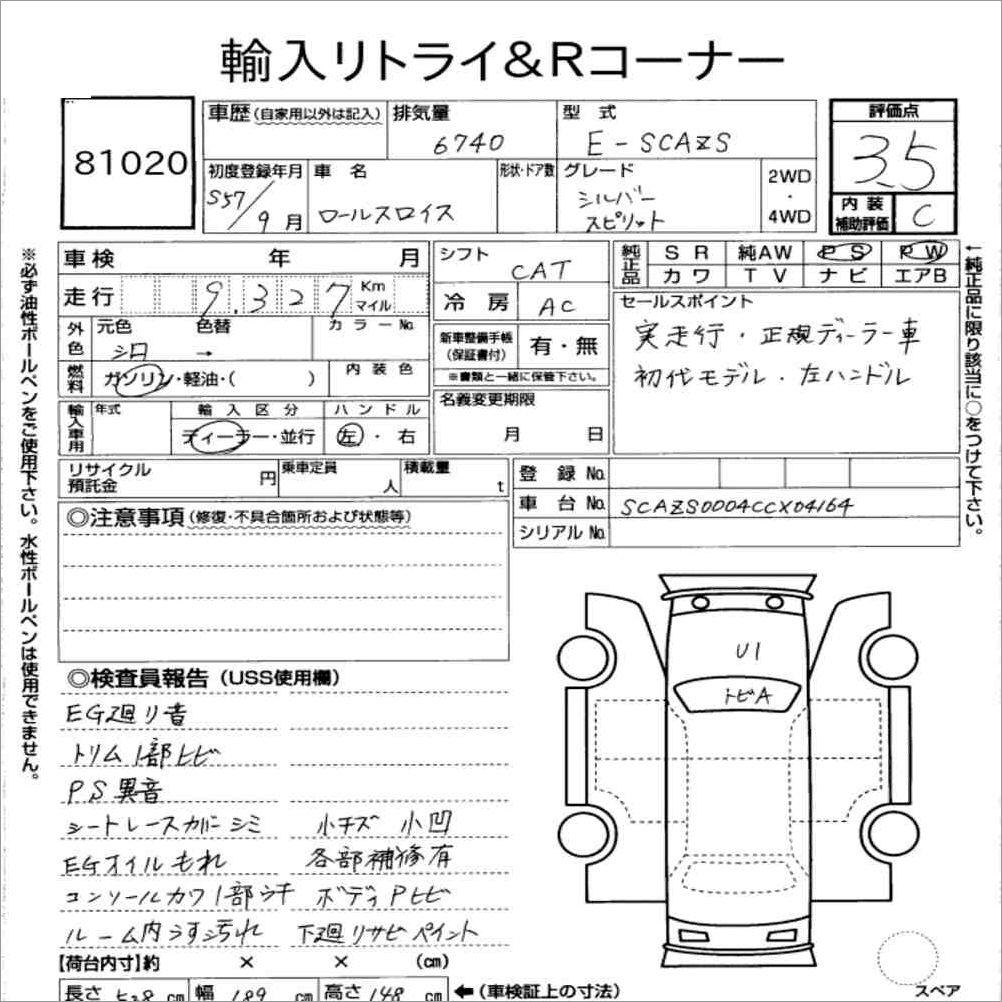 輸入リトライ&Rコーナー
81020
車歴(自家用以外は記入)
排気量
6740
型式
E-SCAZS
評価点
3.5
内装補助評価
C
初度登録年月
S57/9月
車名
ロールスロイス
形状・ドア数
グレード
シルバースピリット
2WD・4WD
車検 年 月
走行 9,327 Kmマイル
シフト
CAT
冷房
AC
純正品
SR 純AW PS PW
カワ TV ナビ エアB
外色
元色 シロ
色替 →
カラーNo.
燃料
ガソリン・軽油・( )
内装色
新車整備手帳(保証書付)
有・無
※書類と一緒に保管下さい。
セールスポイント
実走行・正規ディーラー車
初代モデル・左ハンドル
輸入車用
年式
輸入区分
ディーラー・並行
ハンドル
左・右
名義変更期限
月 日
リサイクル預託金 円
乗車定員 人
積載量 t
登録No.
車台No. SCAZS0004CCX04164
シリアルNo.
◎注意事項(修復・不具合箇所および状態等)
◎検査員報告(USS使用欄)
EG廻り音
トリム1部ヒビ
PS異音
シートレースカバーシミ 小キズ 小凹
EGオイルもれ 各部補修有
コンソールカワ1部ウキ ボディPヒビ
ルーム内うす汚れ 下廻リサビペイント
【荷台内寸】約 × × (cm)
長さ 528 cm 幅 189 cm 高さ 148 cm ←(車検証上の寸法)
U1
トビA
スペア
※必ず油性ボールペンをご使用下さい。水性ボールペンは使用できません。
←純正品に限り該当に○をつけて下さい。